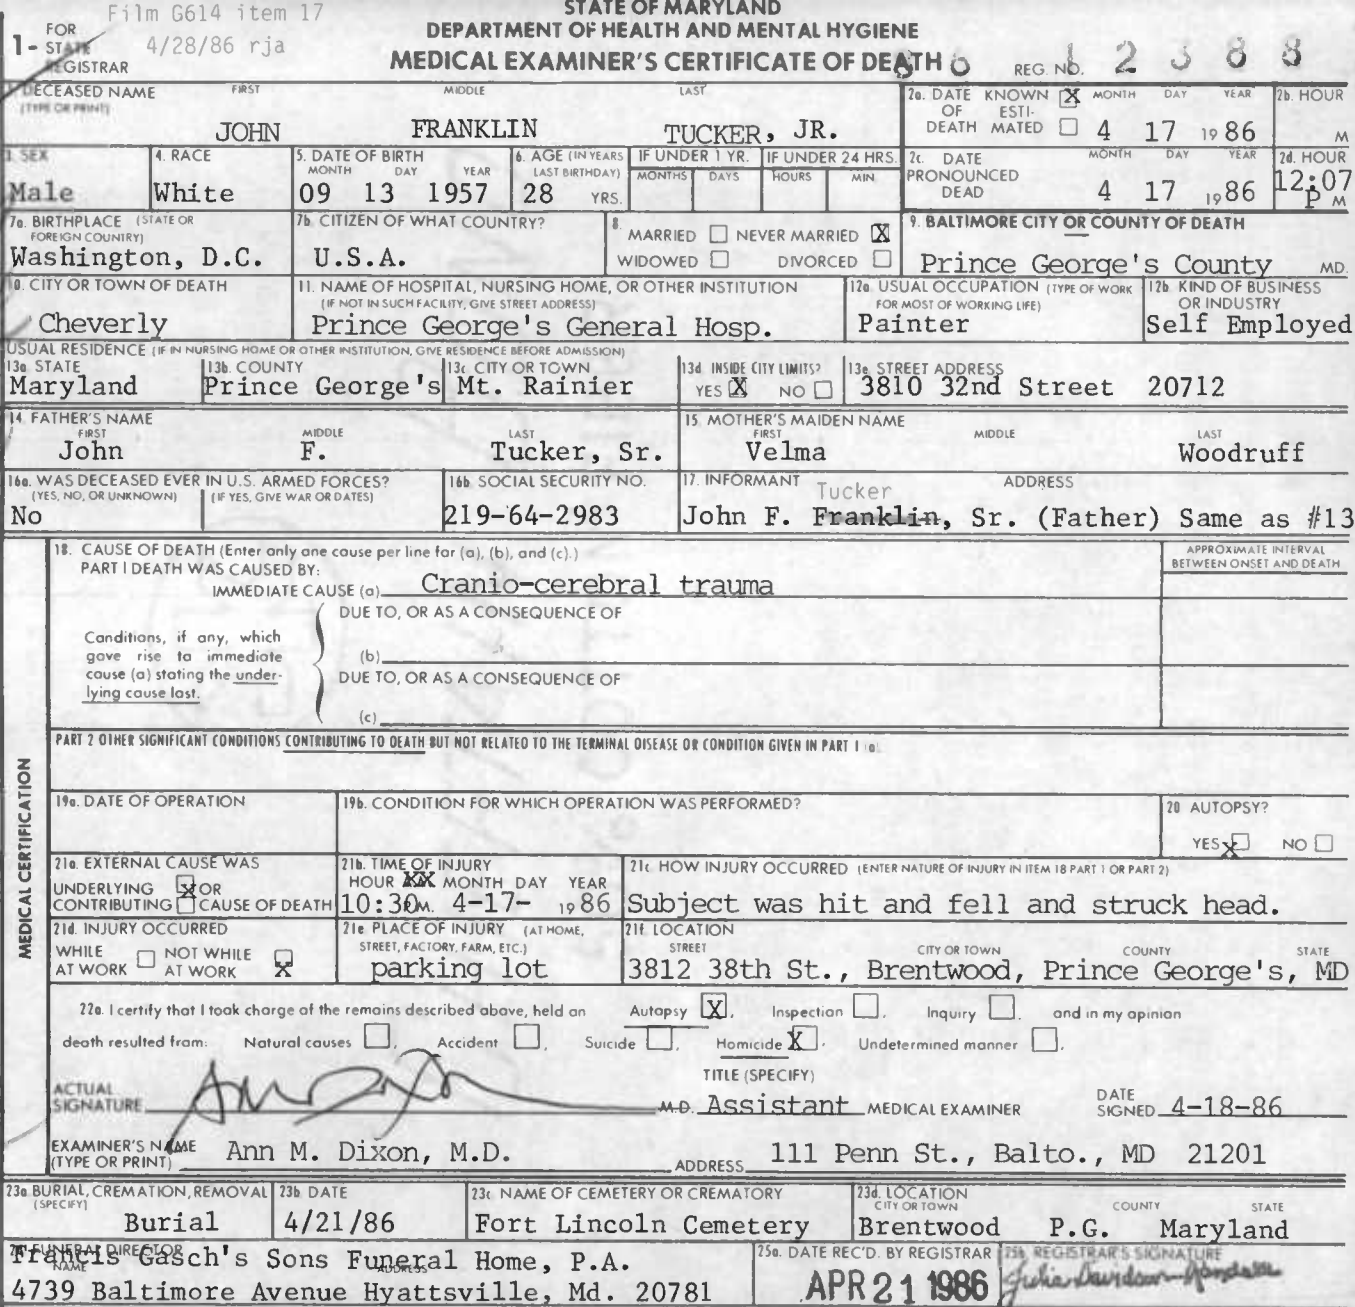 Film G614 item 17
4/28/86 rja
1- FOR STATE REGISTRAR
STATE OF MARYLAND
DEPARTMENT OF HEALTH AND MENTAL HYGIENE
MEDICAL EXAMINER'S CERTIFICATE OF DEATH
86 REG. NO. 12388
DECEASED NAME (TYPE OR PRINT) FIRST MIDDLE LAST
JOHN FRANKLIN TUCKER, JR.
2a. DATE OF DEATH KNOWN X ESTIMATED MONTH DAY YEAR 4 17 1986
2b. HOUR M
3. SEX Male
4. RACE White
5. DATE OF BIRTH MONTH DAY YEAR 09 13 1957
6. AGE (IN YEARS LAST BIRTHDAY) 28 YRS.
IF UNDER 1 YR. MONTHS DAYS
IF UNDER 24 HRS. HOURS MIN.
2c. DATE PRONOUNCED DEAD MONTH DAY YEAR 4 17 1986
2d. HOUR 12:07 P M
7a. BIRTHPLACE (STATE OR FOREIGN COUNTRY) Washington, D.C.
7b. CITIZEN OF WHAT COUNTRY? U.S.A.
8. MARRIED NEVER MARRIED X
WIDOWED DIVORCED
9. BALTIMORE CITY OR COUNTY OF DEATH
Prince George's County MD.
10. CITY OR TOWN OF DEATH Cheverly
11. NAME OF HOSPITAL, NURSING HOME, OR OTHER INSTITUTION
(IF NOT IN SUCH FACILITY, GIVE STREET ADDRESS)
Prince George's General Hosp.
12a. USUAL OCCUPATION (TYPE OF WORK FOR MOST OF WORKING LIFE) Painter
12b. KIND OF BUSINESS OR INDUSTRY Self Employed
USUAL RESIDENCE (IF IN NURSING HOME OR OTHER INSTITUTION, GIVE RESIDENCE BEFORE ADMISSION)
13a. STATE Maryland
13b. COUNTY Prince George's
13c. CITY OR TOWN Mt. Rainier
13d. INSIDE CITY LIMITS? YES X NO
13e. STREET ADDRESS 3810 32nd Street 20712
14. FATHER'S NAME FIRST MIDDLE LAST
John F. Tucker, Sr.
15. MOTHER'S MAIDEN NAME FIRST MIDDLE LAST
Velma Woodruff
16a. WAS DECEASED EVER IN U.S. ARMED FORCES?
(YES, NO, OR UNKNOWN) (IF YES, GIVE WAR OR DATES)
No
16b. SOCIAL SECURITY NO. 219-64-2983
17. INFORMANT ADDRESS
Tucker
John F. Franklin, Sr. (Father) Same as #13
MEDICAL CERTIFICATION
18. CAUSE OF DEATH (Enter only one cause per line for (a), (b), and (c).)
PART I DEATH WAS CAUSED BY:
APPROXIMATE INTERVAL BETWEEN ONSET AND DEATH
IMMEDIATE CAUSE (a) Cranio-cerebral trauma
DUE TO, OR AS A CONSEQUENCE OF
Conditions, if any, which gave rise to immediate cause (a) stating the underlying cause last.
(b)
DUE TO, OR AS A CONSEQUENCE OF
(c)
PART 2 OTHER SIGNIFICANT CONDITIONS CONTRIBUTING TO DEATH BUT NOT RELATED TO THE TERMINAL DISEASE OR CONDITION GIVEN IN PART 1 (a)
19a. DATE OF OPERATION
19b. CONDITION FOR WHICH OPERATION WAS PERFORMED?
20 AUTOPSY?
YES X NO
21a. EXTERNAL CAUSE WAS
UNDERLYING X OR
CONTRIBUTING CAUSE OF DEATH
21b. TIME OF INJURY
HOUR XX MONTH DAY YEAR
10:30 M. 4-17- 1986
21c. HOW INJURY OCCURRED (ENTER NATURE OF INJURY IN ITEM 18 PART 1 OR PART 2)
Subject was hit and fell and struck head.
21d. INJURY OCCURRED
WHILE AT WORK NOT WHILE AT WORK X
21e. PLACE OF INJURY (AT HOME, STREET, FACTORY, FARM, ETC.)
parking lot
21f. LOCATION
STREET CITY OR TOWN COUNTY STATE
3812 38th St., Brentwood, Prince George's, MD
22a. I certify that I took charge of the remains described above, held an Autopsy X, Inspection, Inquiry. and in my opinion
death resulted from: Natural causes, Accident, Suicide, Homicide X. Undetermined manner.
TITLE (SPECIFY)
ACTUAL SIGNATURE M.D. Assistant MEDICAL EXAMINER DATE SIGNED 4-18-86
EXAMINER'S NAME (TYPE OR PRINT) Ann M. Dixon, M.D. ADDRESS 111 Penn St., Balto., MD 21201
23a. BURIAL, CREMATION, REMOVAL (SPECIFY) Burial
23b. DATE 4/21/86
23c. NAME OF CEMETERY OR CREMATORY Fort Lincoln Cemetery
23d. LOCATION CITY OR TOWN COUNTY STATE
Brentwood P.G. Maryland
24 FUNERAL DIRECTOR NAME ADDRESS
Francis Gasch's Sons Funeral Home, P.A.
4739 Baltimore Avenue Hyattsville, Md. 20781
25a. DATE REC'D. BY REGISTRAR
APR 21 1986
25b. REGISTRAR'S SIGNATURE
Julia Davidson-Randall